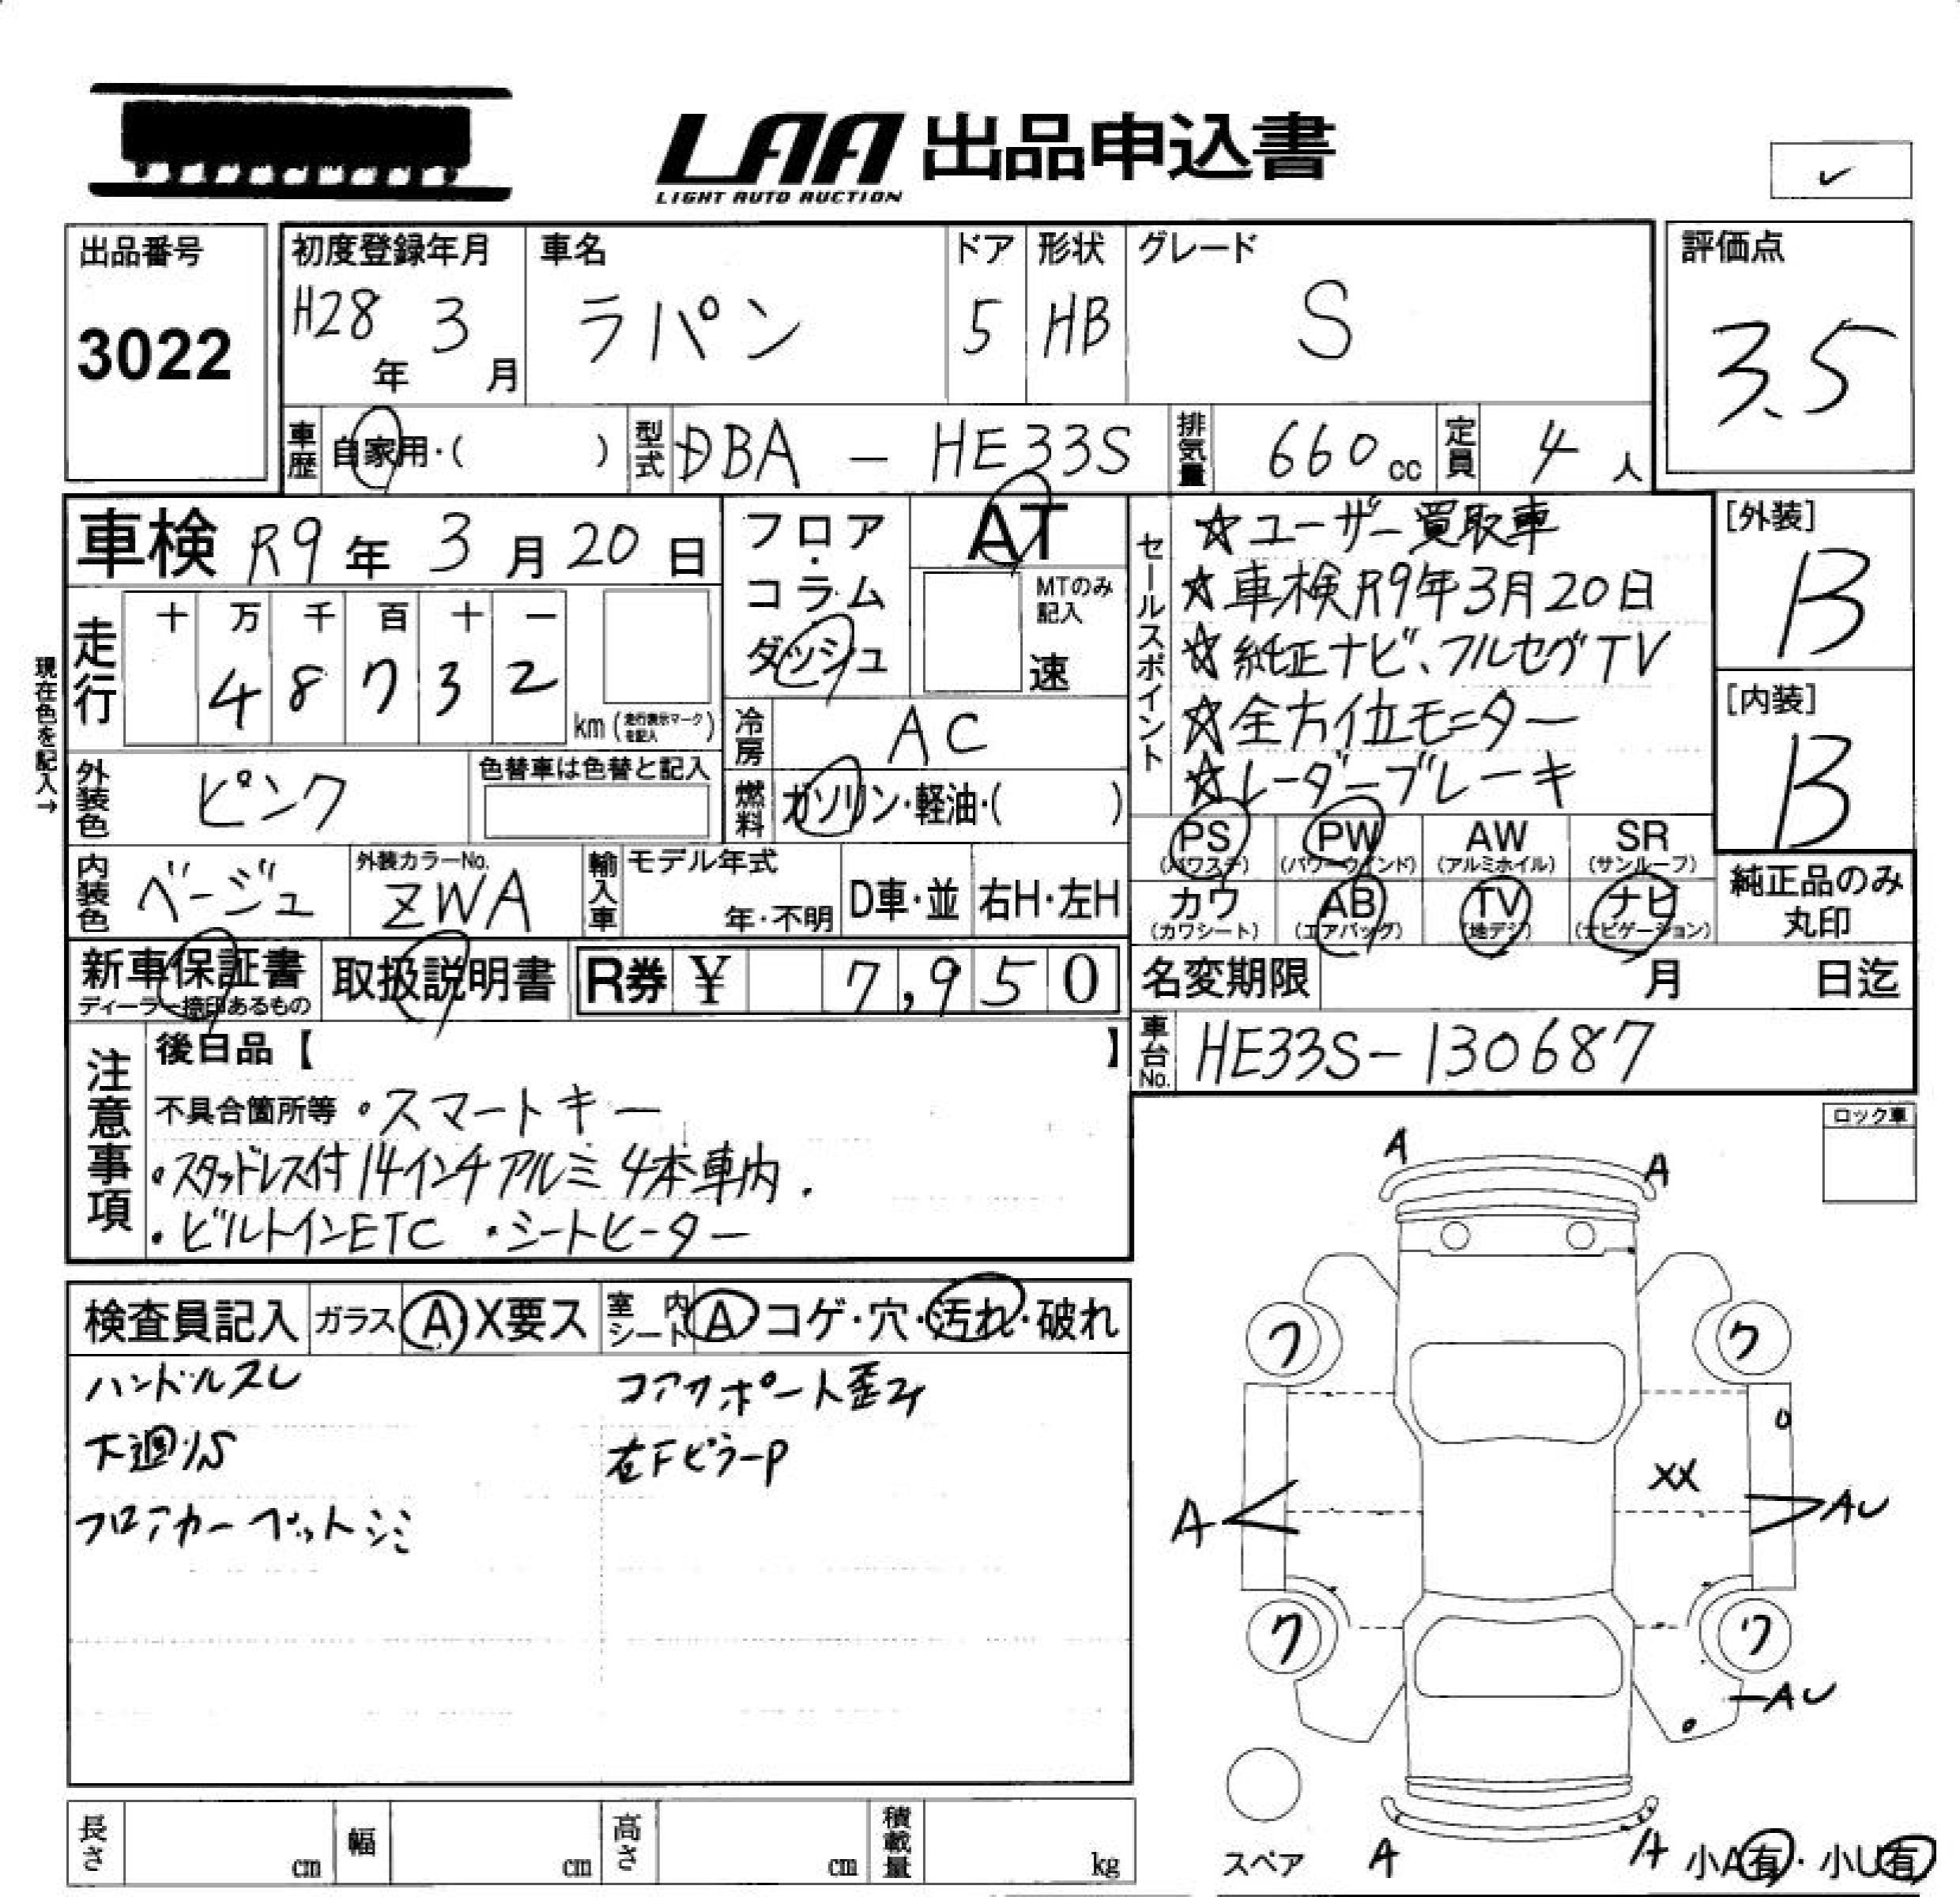 LAA 出品申込書
LIGHT AUTO AUCTION
出品番号
3022
初度登録年月
H28年 3月
車名
ラパン
ドア
5
形状
HB
グレード
S
評価点
3.5
車歴 自家用・( )
型式 DBA - HE33S
排気量 660cc
定員 4人
車検 R9年 3月20日
フロア・コラム
ダッシュ
AT
MTのみ記入
速
セールスポイント
☆ユーザー買取車
☆車検R9年3月20日
☆純正ナビ、フルセグTV
☆全方位モニター
☆レーダーブレーキ
[外装]
B
[内装]
B
現在色を記入→
走行
十 万 千 百 十 一
4 8 7 3 2
km (走行表示マークを記入)
冷房 AC
外装色 ピンク
色替車は色替と記入
燃料 ガソリン・軽油・( )
PS (パワステ)
PW (パワーウインド)
AW (アルミホイル)
SR (サンルーフ)
カワ (カワシート)
AB (エアバッグ)
TV (地デジ)
ナビ (ナビゲーション)
純正品のみ
丸印
内装色 ベージュ
外装カラーNo.
ZWA
輸入車 モデル年式
年・不明
D車・並
右H・左H
新車保証書
ディーラー捺印あるもの
取扱説明書
R券 ¥ 7,950
名変期限 月 日迄
車台No. HE33S-130687
注意事項
後日品【 】
不具合箇所等 ・スマートキー
・スタッドレス付14インチアルミ4本車内.
・ビルトインETC ・シートヒーター
ロック車
検査員記入 ガラス A X要ス 室内シート A コゲ・穴・汚れ・破れ
ハンドルスレ
コアサポート歪み
下廻りS
右FピラーP
フロアカーペットシミ
A A
ワ ワ
U
XX
A AU
ワ ワ
AU
スペア
A A
小A有・小U有
長さ cm 幅 cm 高さ cm 積載量 kg